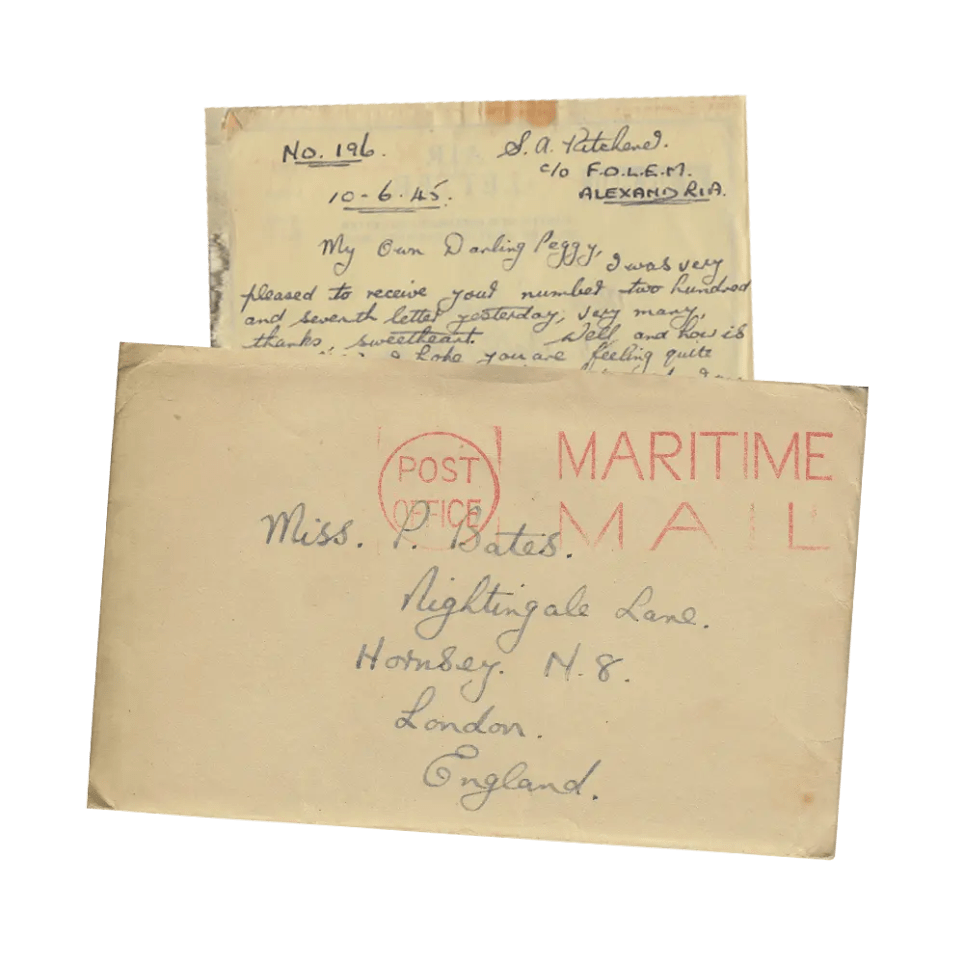 No. 196.
S. A. Kitchener.
c/o F.O.L.E.M.
ALEXANDRIA.
10-6-45.
My Own Darling Peggy,
I was very
pleased to receive your number two hundred
and seventh letter yesterday, very many,
thanks, sweetheart. Well and how is
I hope you are feeling quite
POST
OFFICE
MARITIME
MAIL
Miss. P. Bates.
Nightingale Lane.
Hornsey. N. 8.
London.
England.